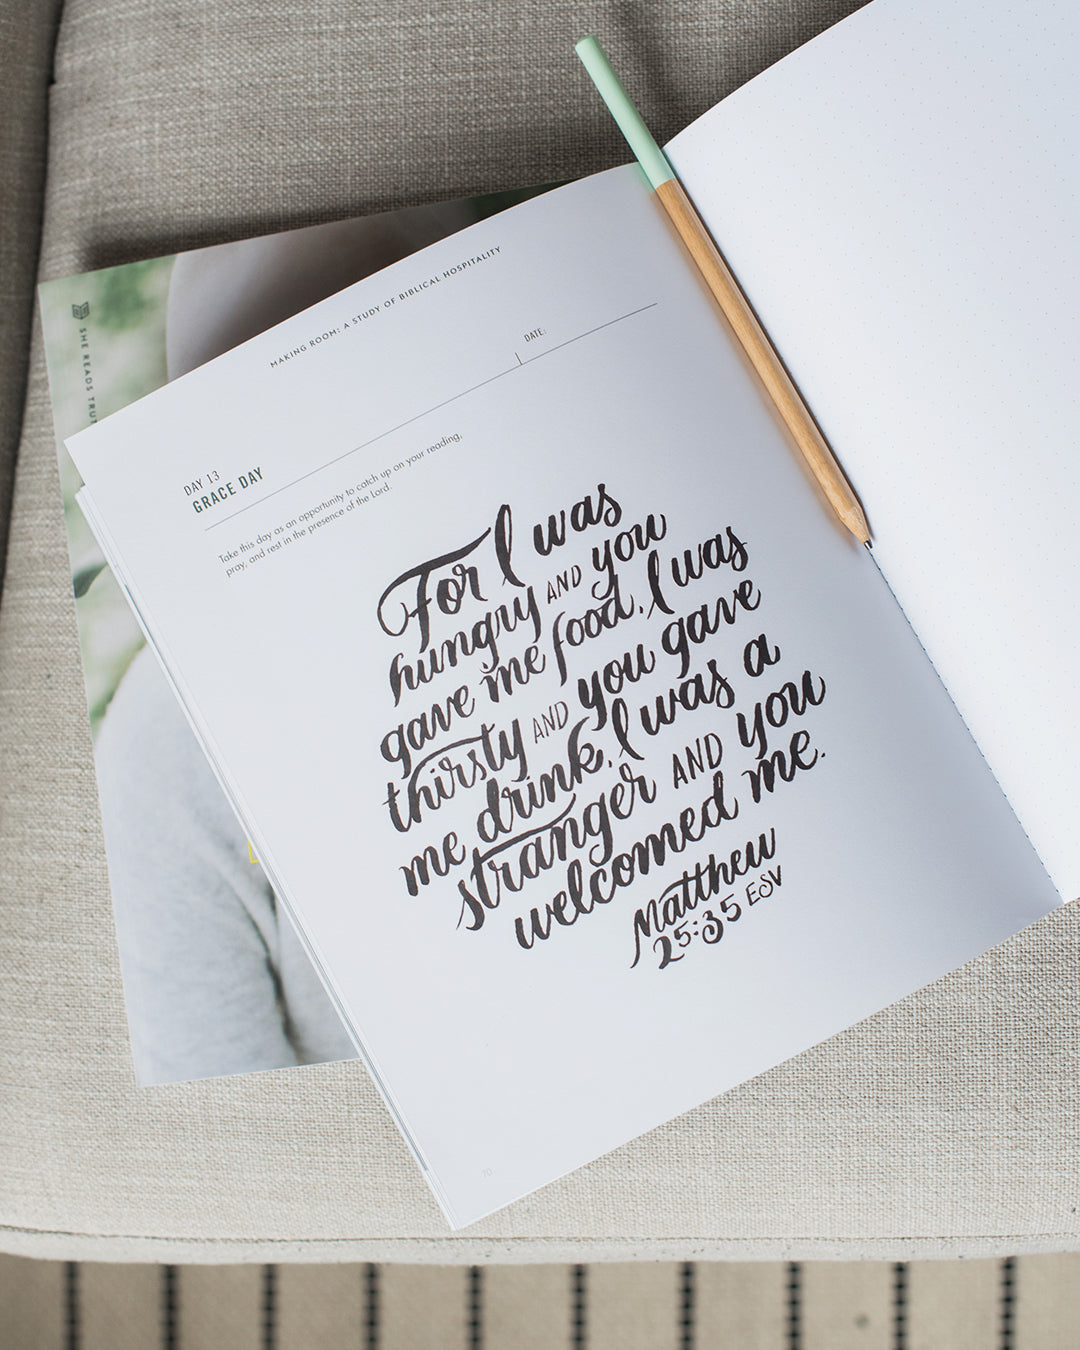 MAKING ROOM: A STUDY OF BIBLICAL HOSPITALITY
DATE:
DAY 13
GRACE DAY
Take this day as an opportunity to catch up on your reading,
pray, and rest in the presence of the Lord.
For I was
hungry AND you
gave me food, I was
thirsty AND you gave
me drink, I was a
stranger AND you
welcomed me.
Matthew
25:35 ESV
70
SHE READS TRU